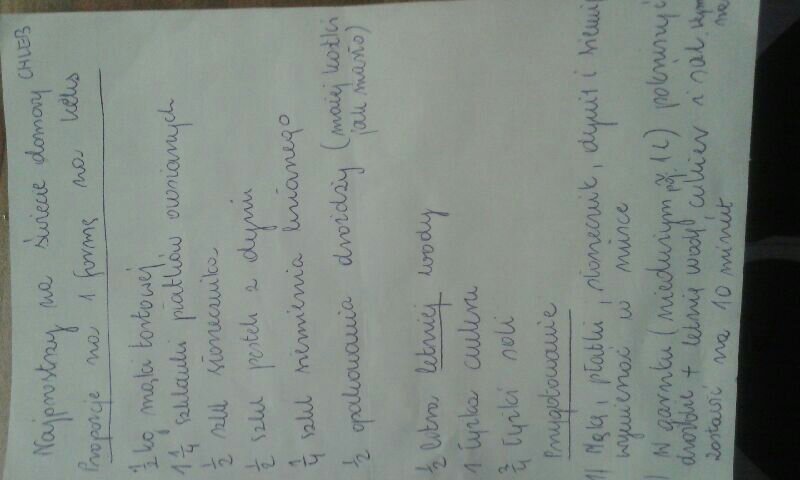 Najprostszy na świecie domowy CHLEB
Proporcje na 1 formę na keks
1/2 kg mąki tortowej
1 1/4 szklanki płatków owsianych
1/2 szkl słonecznika
1/2 szkl pestek z dyni
1/4 szkl siemienia lnianego
1/2 opakowania drożdży (małej kostki
jak masło)
1/2 litra letniej wody
1 łyżka cukru
3/4 łyżki soli
Przygotowanie
1) Mąkę, płatki, słonecznik, dynię i siemię
wymieszać w misce
) W garnku (nieduzym poj. 1 L) pokruszyć
drożdże + letnią wodę cukier i sól.
zostawić na 10 minut